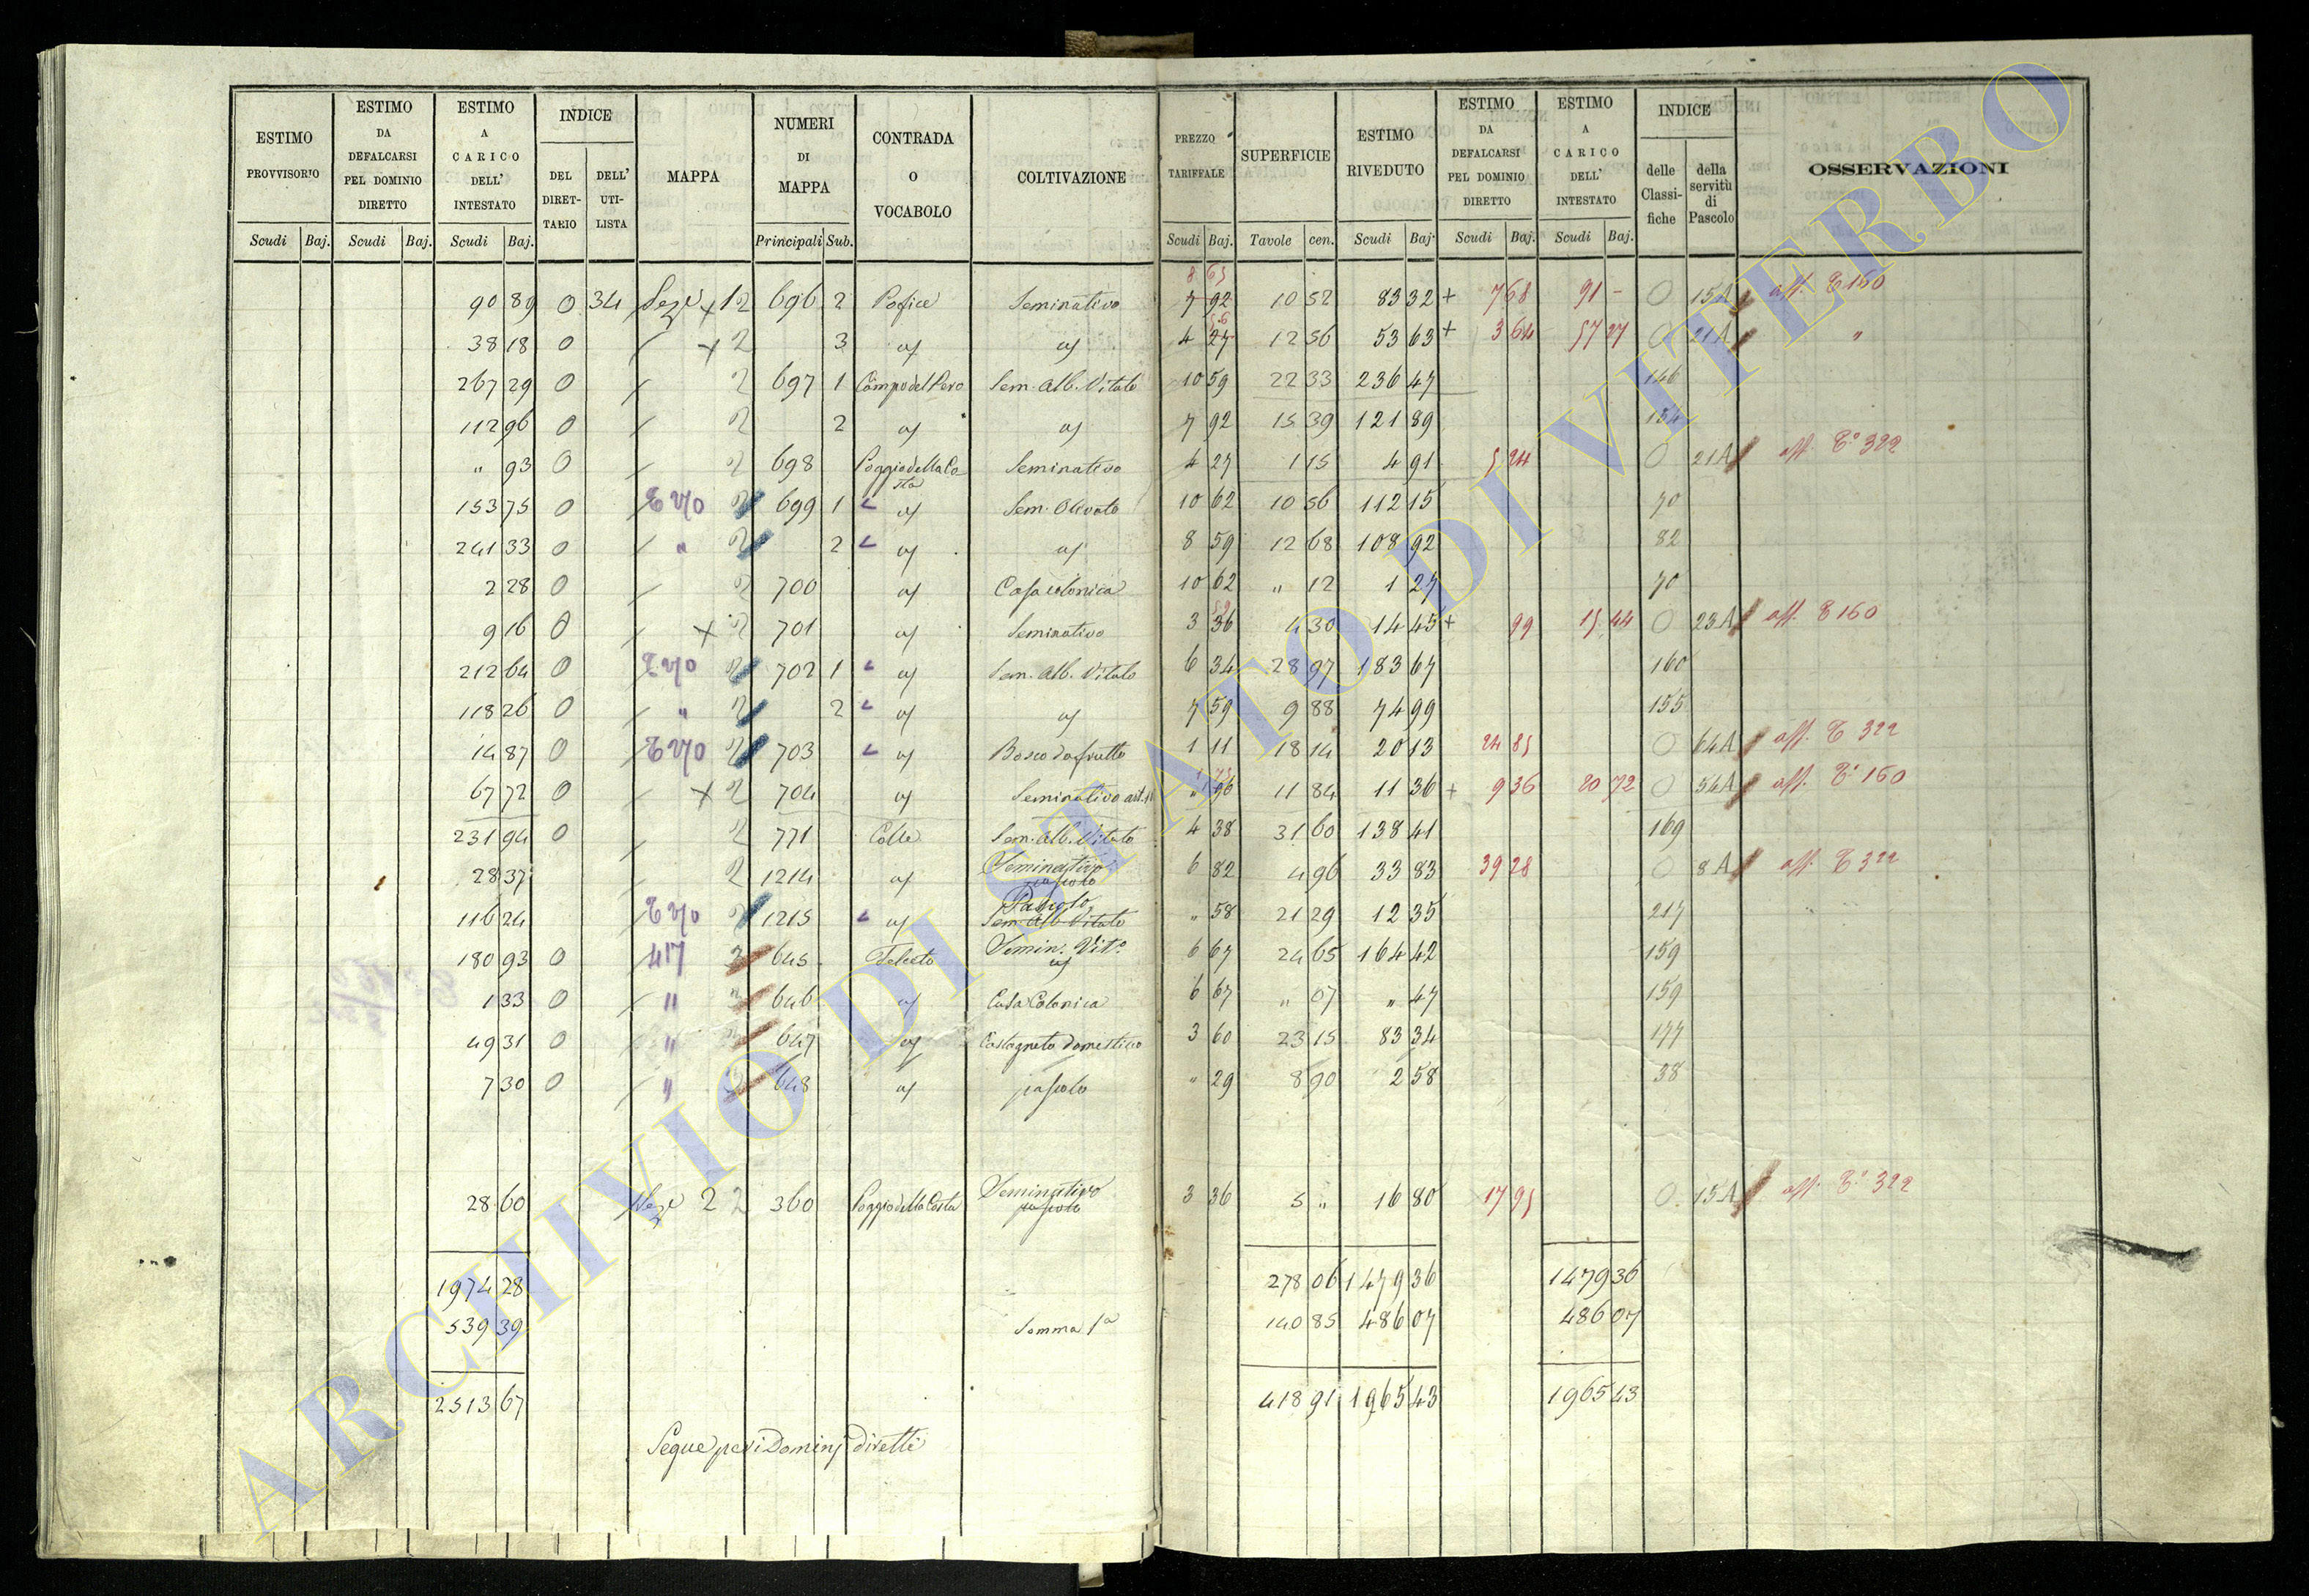 ESTIMO PROVVISORIO
ESTIMO DA DEFALCARSI PEL DOMINIO DIRETTO
ESTIMO A CARICO DELL' INTESTATO
INDICE
DEL DIRET- TARIO
DELL' UTI- LISTA
MAPPA
NUMERI DI MAPPA
CONTRADA O VOCABOLO
COLTIVAZIONE
PREZZO TARIFFALE
SUPERFICIE
ESTIMO RIVEDUTO
ESTIMO DA DEFALCARSI PEL DOMINIO DIRETTO
ESTIMO A CARICO DELL' INTESTATO
INDICE
delle Classi- fiche
della servitù di Pascolo
OSSERVAZIONI
Scudi Baj. Scudi Baj. Scudi Baj. Principali Sub. Scudi Baj. Tavole cen. Scudi Baj. Scudi Baj. Scudi Baj.
8 65
90 89 0 34 Sez.e + 1 2 696 2 Pofice Seminativo 7 92 10 52 83 32 + 7 68 91 - 0 15 A aff. E 160
56
38 18 0 + 2 3 af af 4 27 12 56 53 63 + 3 64 57 27 0 21 A "
267 29 0 2 697 1 Campo del Pero Sem. Alb. Vitato 10 59 22 33 236 47 146
112 96 0 2 2 af af 7 92 15 39 121 89 154
" 93 0 2 698 Poggio della Costa Seminativo 4 27 1 15 4 91 5 24 0 21 A aff. E° 322
153 75 0 E 270 2 699 1 af Sem. Olivato 10 62 10 56 112 15 70
241 33 0 " 2 2 af af 8 59 12 68 108 92 82
2 28 0 2 700 af Casa colonica 10 62 " 12 1 27 70
59
9 16 0 + 2 701 af Seminativo 3 36 4 30 14 45 + 99 15 44 0 23 A aff. E 160
212 64 0 E 270 2 702 1 af Sem. Alb. Vitato 6 34 28 97 183 67 160
118 26 0 " 2 2 af af 7 59 9 88 74 99 155
14 87 0 E 270 2 703 af Bosco da frutto 1 11 18 14 20 13 24 85 0 64 A aff. E 322
1 75
67 72 0 + 2 704 af Seminativo " 96 11 84 11 36 + 9 36 20 72 0 54 A aff. E° 160
231 94 0 2 771 Colle Sem. Alb. Vitato 4 38 31 60 138 41 169
28 37 2 1214 af Seminativo pascolo 6 82 4 96 33 83 39 28 0 8 A aff. E 322
116 24 E 270 2 1215 af Pascolo Sem. Alb. Vitato " 58 21 29 12 35 217
180 93 0 417 3 645 Felceto Semin. Vit.o af 6 67 24 65 164 42 159
1 33 0 " 3 646 af Casa Colonica 6 67 " 07 " 47 159
49 31 0 " 3 647 af Castagneto domestico 3 60 23 15 83 34 177
7 30 0 " 3 648 af pascolo " 29 8 90 2 58 38
28 60 Sez.e 2 2 360 Poggio della Costa Seminativo pascolo 3 36 5 " 16 80 17 95 0 15 A aff. E° 322
1974 28 278 06 1479 36 1479 36
539 39 Somma 1a 140 85 486 07 486 07
2513 67 418 91 1965 43 1965 43
Segue per i Dominj diretti
ARCHIVIO DI STATO DI VITERBO